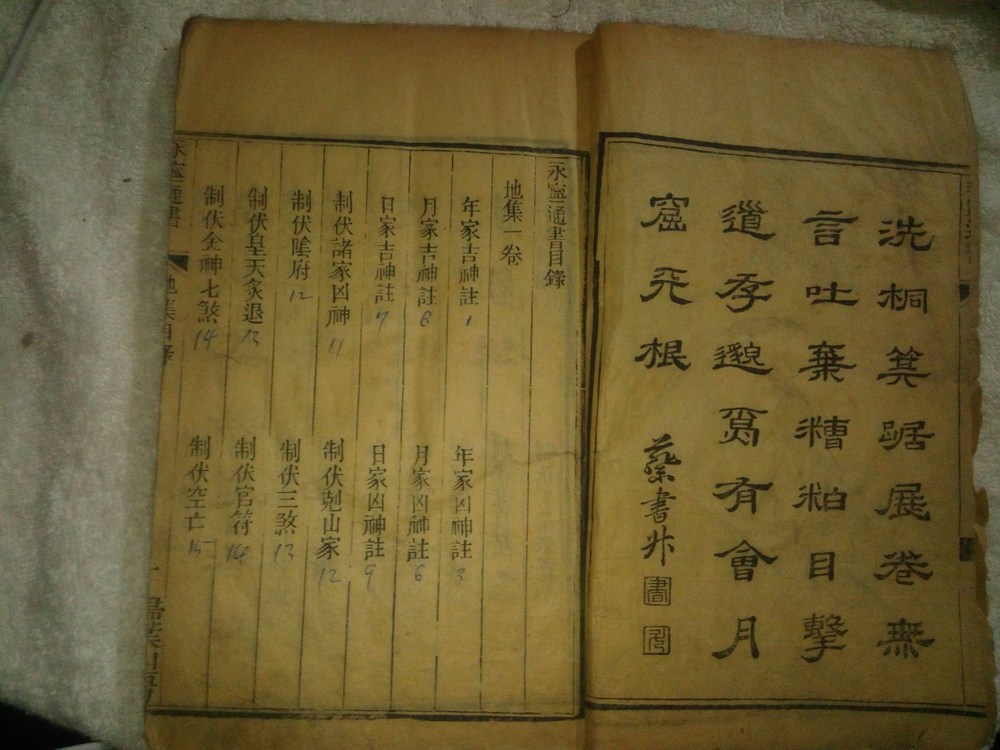 洗桐箕踞展卷無
言吐棄糟粕目擊
道存邈焉有會月
窟天根
書
永寧通書目錄
地集一卷
年家吉神註 1 年家凶神註 3
月家吉神註 6 月家凶神註 6
日家吉神註 7 日家凶神註 9
制伏諸家凶神 11 制伏剋山家 12
制伏陰府 12 制伏三煞 13
制伏皇天炙退 13 制伏官符 14
制伏金神七煞 14 制伏空亡 15
永寧通書 地集目錄 一